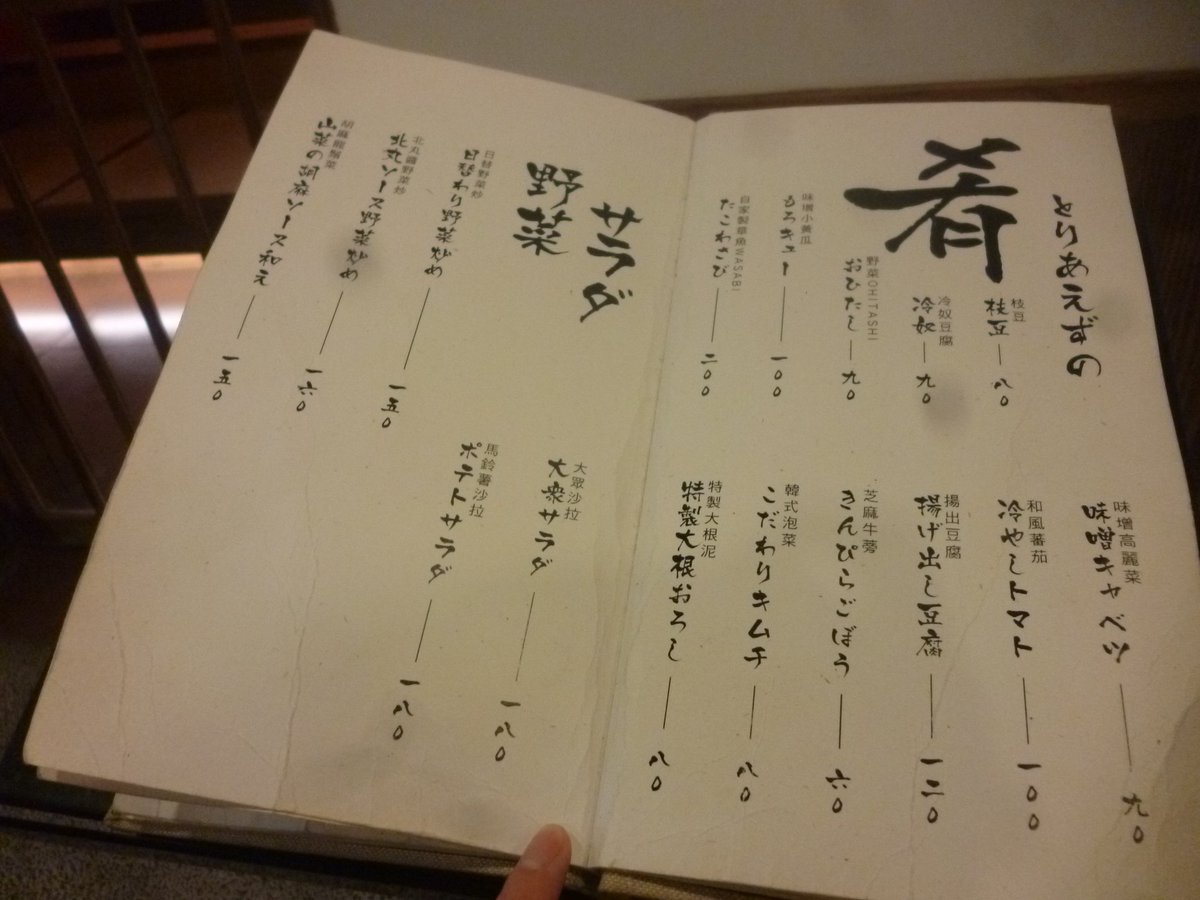 とりあえずの
肴
枝豆
枝豆 八〇
冷奴豆腐
冷奴 九〇
野菜OHITASHI
おひたし 九〇
味增小黃瓜
もろキュー 一〇〇
自家製章魚WASABI
たこわさび 二〇〇
味增高麗菜
味噌キャベツ 九〇
和風蕃茄
冷やしトマト 一〇〇
揚出豆腐
揚げ出し豆腐 一二〇
芝麻牛蒡
きんぴらごぼう 六〇
韓式泡菜
こだわりキムチ 八〇
特製大根泥
特製大根おろし 八〇
サラダ
野菜
日替野菜炒
日替わり野菜炒め 一五〇
北丸醬野菜炒
北丸ソース野菜炒め 一六〇
胡麻龍鬚菜
山菜の胡麻ソース和え 一五〇
大眾沙拉
大衆サラダ 一八〇
馬鈴薯沙拉
ポテトサラダ 一八〇